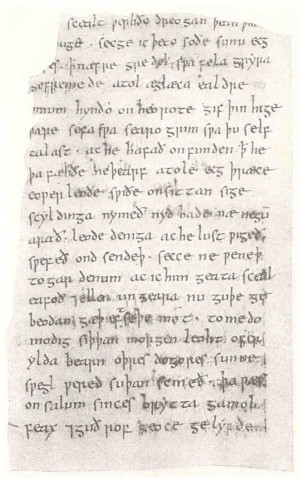 scealt ƿerhðo dreogan þeah þin
duge · secge ic þe to soðe sunu ecg
es · ꝥ næfre gre del · sƿa fela gryra
gefremede atol æglæca ealdre
þinum hyndo on heorote gif þin hige
ƿære sefa sƿa searo grim sƿa þu self
talast · ac he hafað onfunden ꝥ he
þa fæhðe ne þearf atole ecg þræce
eoƿer leode sƿiðe onsittan sige
scyldinga nymeð nyd bade næ negū
arað · leode deniga ac he lust ƿigeð
sƿefeð ond sendeþ · secce ne ƿeneþ
to gar denum ac ic him geata sceal
eafoð ⁊ ellen ungeara nu guþe ge
beodan gæþ eft se þe mot · to medo
modig siþþan morgen leoht ofer
ylda bearn oþres dogores sunne
sƿegl ƿered suþan scineð · þa ƿæs
on salum sinces brytta gamol
feax ⁊ guð rof geoce gelyfde